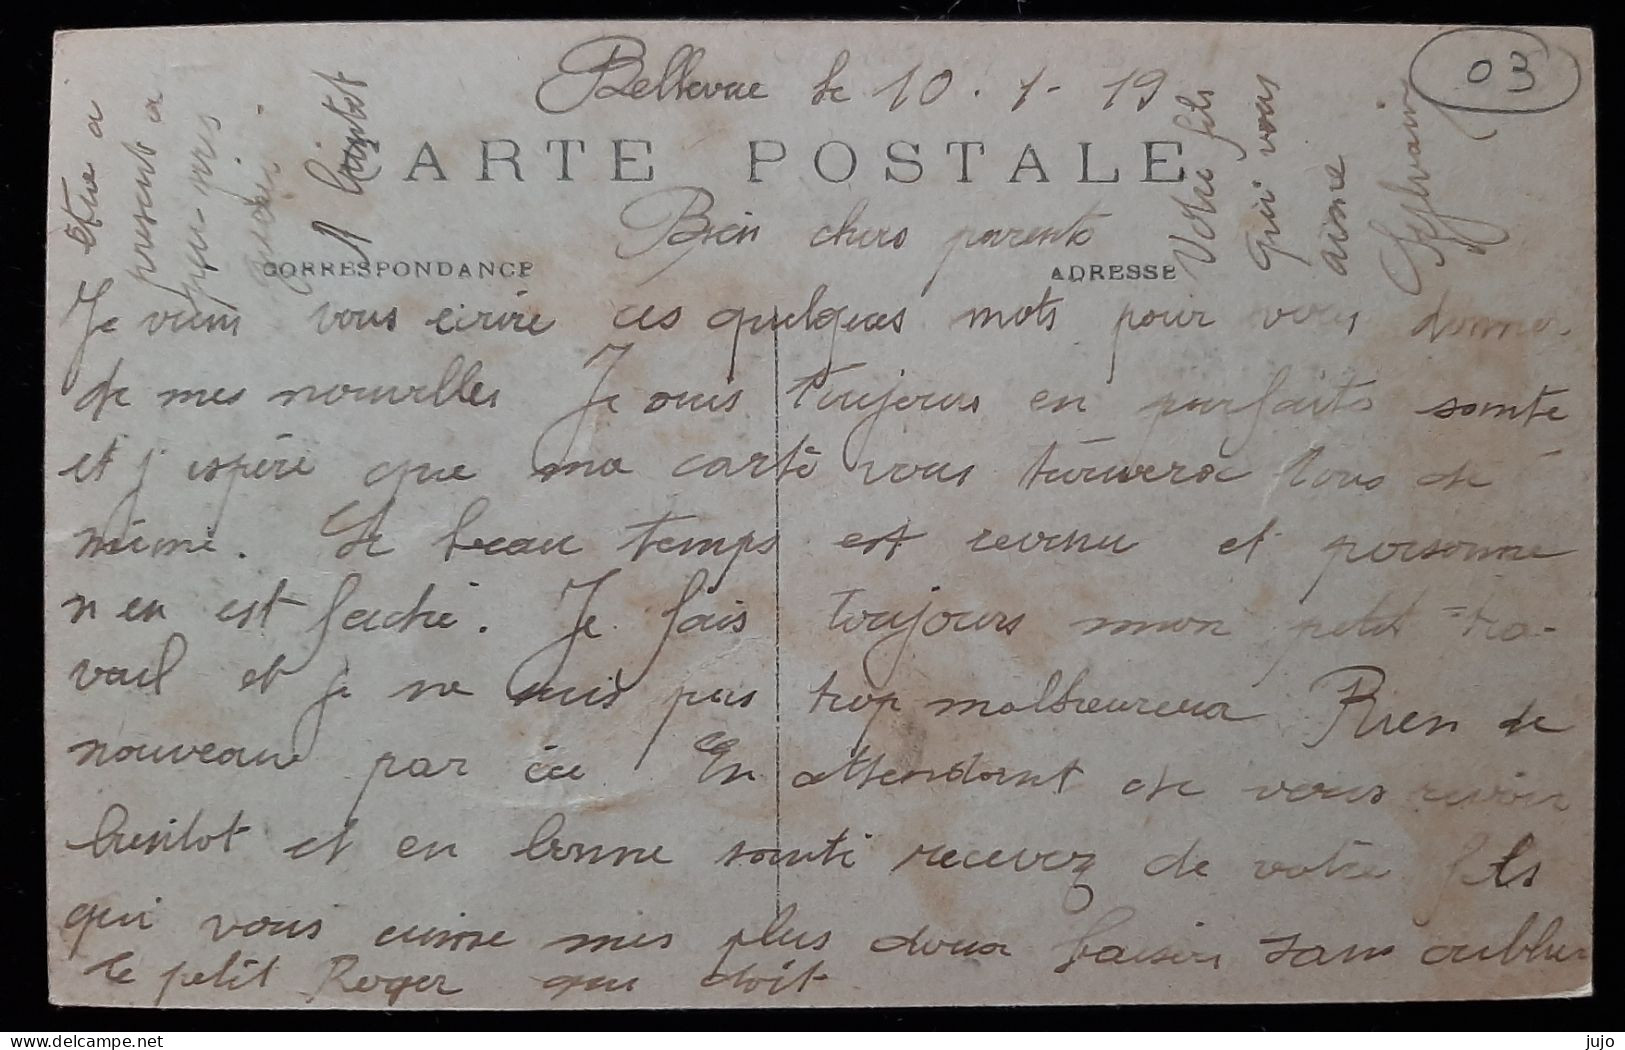 03
Bellevue le 10.1-19
CARTE POSTALE
Bien chers parents
CORRESPONDANCE
ADRESSE
Je viens vous écrire ces quelques mots pour vous donner
de mes nouvelles Je suis toujours en parfaite sante
et j espère que ma carte vous trouvera tous de
même. Le beau temps est revenu et personne
n en est faché. Je fais toujours mon petit tra-
vail et je ne suis pas trop malheureux Rien de
nouveau par ici En attendant de vous revoir
bientot et en bonne santé recevez de votre fils
qui vous aime mes plus doux baisers sans oublier
le petit Roger qui doit
être a
present a
A bientot
Votre fils
qui vous
aime
Sylvain
jujo